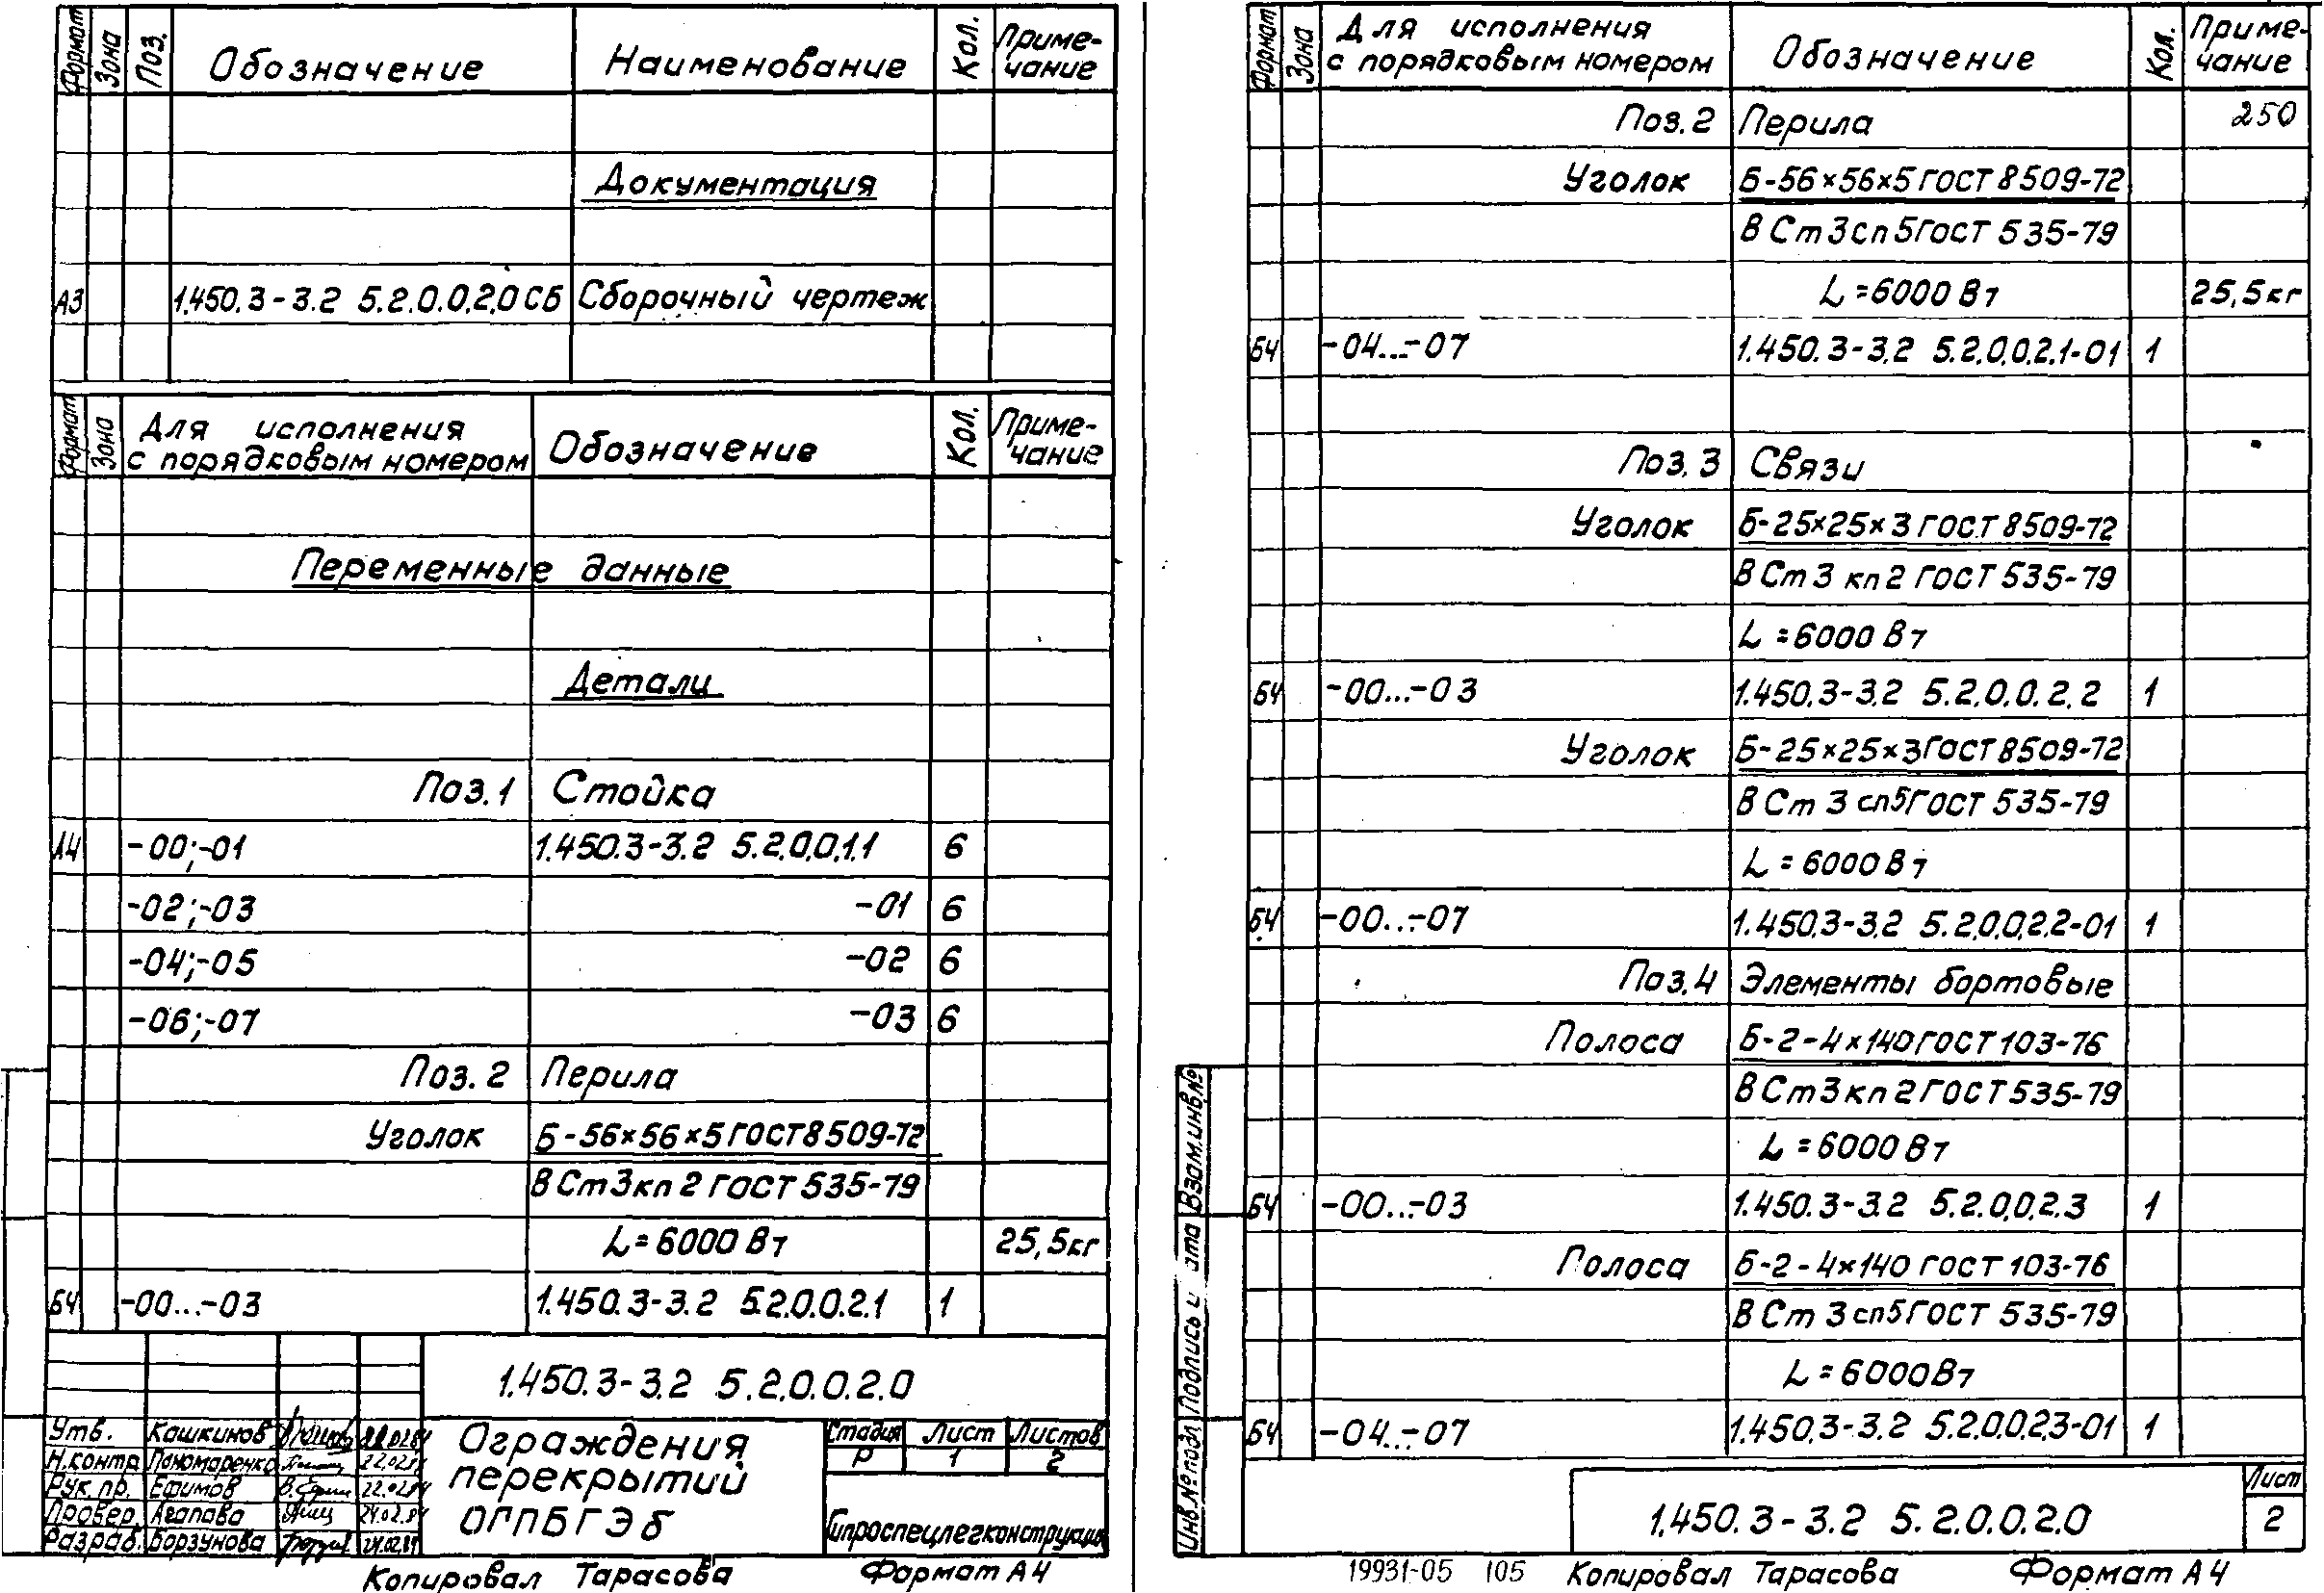 Формат Зона Поз. Обозначение Наименование Кол. Приме-
чание
Документация
А3 1.450.3-3.2 5.2.0.0.2.0 СБ Сборочный чертеж
Формат Зона Для исполнения Обозначение Кол. Приме-
с порядковым номером чание
Переменные данные
Детали
Поз.1 Стойка
А4 -00;-01 1.450.3-3.2 5.2.0.0.1.1 6
-02;-03 -01 6
-04;-05 -02 6
-06;-07 -03 6
Поз.2 Перила
Уголок Б-56×56×5 ГОСТ 8509-72
В Ст3кп2 ГОСТ 535-79
L=6000 Вт 25,5кг
БЧ -00...-03 1.450.3-3.2 5.2.0.0.2.1 1
1.450.3-3.2 5.2.0.0.2.0
Утв. Кашкинов
Н.контр Пономаренко 22.02.84
Рук.пр. Ефимов 22.02.84
Провер. Агапова 24.02.84
Разраб. Борзунова 24.02.84
Ограждения
перекрытий
ОГПБГЭб
Стадия Лист Листов
Р 1 2
Гипроспецлегконструкция
Копировал Тарасова Формат А4
Формат Зона Для исполнения Обозначение Кол. Приме-
с порядковым номером чание
Поз.2 Перила 250
Уголок Б-56×56×5 ГОСТ 8509-72
В Ст3сп5 ГОСТ 535-79
L=6000 Вт 25,5кг
БЧ -04...-07 1.450.3-3.2 5.2.0.0.2.1-01 1
Поз.3 Связи
Уголок Б-25×25×3 ГОСТ 8509-72
В Ст3 кп2 ГОСТ 535-79
L=6000 Вт
БЧ -00...-03 1.450.3-3.2 5.2.0.0.2.2 1
Уголок Б-25×25×3 ГОСТ 8509-72
В Ст 3 сп5 ГОСТ 535-79
L=6000 Вт
БЧ -00...-07 1.450.3-3.2 5.2.0.0.2.2-01 1
Поз.4 Элементы бортовые
Полоса Б-2-4×140 ГОСТ 103-76
В Ст3кп2 ГОСТ 535-79
L=6000 Вт
БЧ -00...-03 1.450.3-3.2 5.2.0.0.2.3 1
Полоса Б-2-4×140 ГОСТ 103-76
В Ст 3сп5 ГОСТ 535-79
L=6000 Вт
БЧ -04...-07 1.450.3-3.2 5.2.0.0.2.3-01 1
Взам.инв.№
Подпись и дата
Инв.№ подл
1.450.3-3.2 5.2.0.0.2.0
Лист
2
19931-05 105 Копировал Тарасова Формат А4